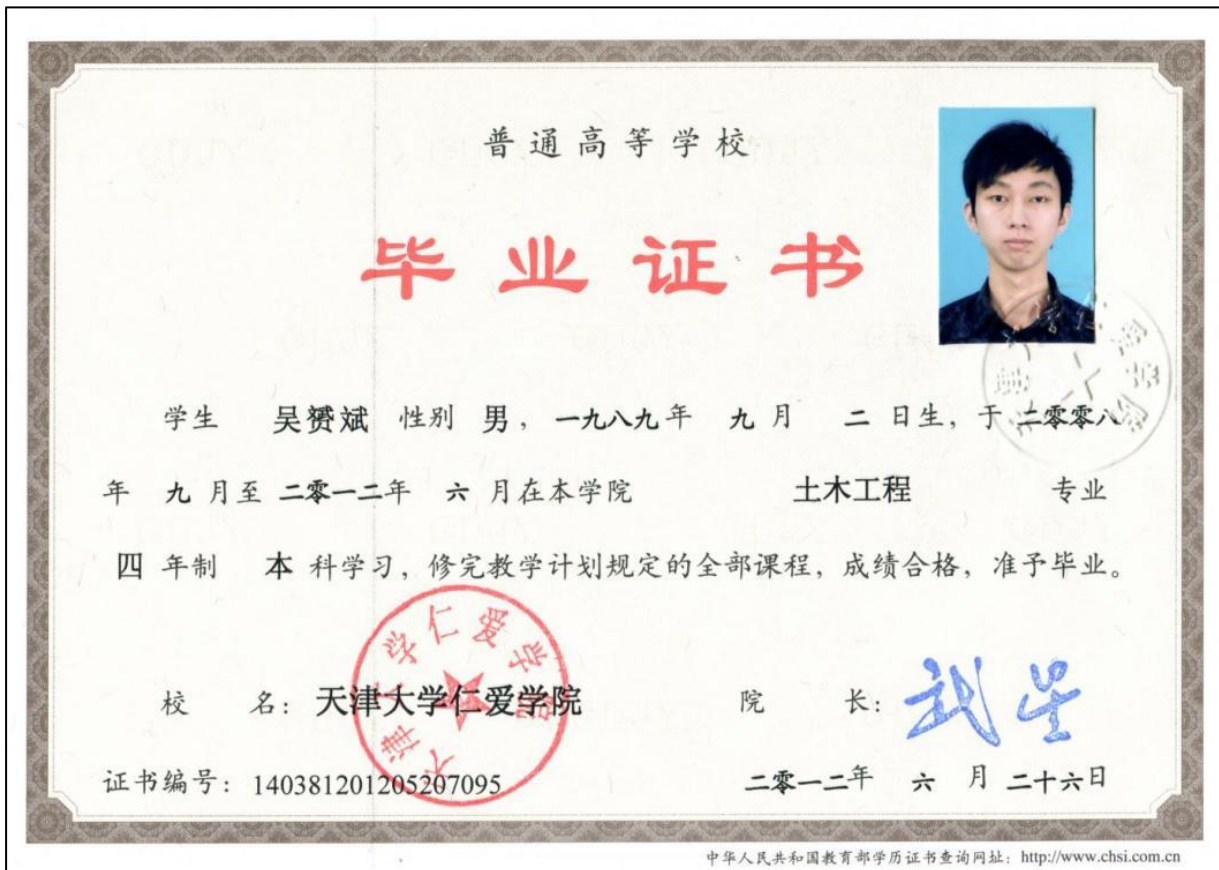 普通高等学校
毕业证书
学生 吴赟斌 性别 男，一九八九年 九月 二 日生，于 二零零八
年 九 月至 二零一二年 六 月在本学院 土木工程 专业
四 年制 本 科学习，修完教学计划规定的全部课程，成绩合格，准予毕业。
天津大学仁爱学院
校 名：天津大学仁爱学院 院 长：
证书编号：140381201205207095 二零一二年 六 月 二十六日
中华人民共和国教育部学历证书查询网址：http://www.chsi.com.cn